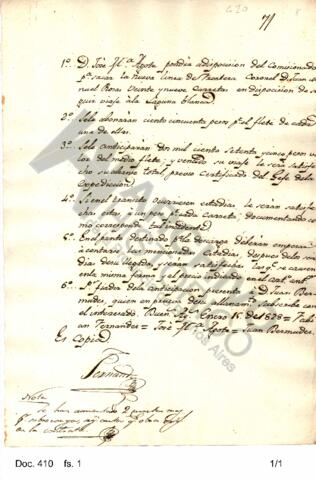 410
71
1º D. José Mª Agote pondrá a disposicion del Comisionado
pª sacar la nueva linea de frontera Coronel D. Juan Ma-
nuel Rosas veinte y nueve carretas en disposicion de se-
guir viaje a la laguna blanca.
2º Se le abonarán ciento cincuenta pesos pr el flete de cada
una de ellas.
3º Se le anticiparán dos mil ciento setenta y cinco pesos va-
lor del medio flete; y vencido su viaje le será satisfe-
cho su abono total, previo certificado del Gefe de la
Expedicion.
4º Si en el transito ocurriesen estadias le serán satisfe-
chas estas a un peso pr cada carreta; documentandolo co-
mo corresponde tal incidente.
5º En el punto destinado pª la descarga deberán empezar
a contarse las mencionadas estadias despues de los
dias de su llegada, y serán satisfechas las qe se causen
en la misma forma y el precio indicado en el art. ant.
6º Pª fiador de la anticipacion presenta a D. Juan Ber-
mudes, quien en prueva de su allanamto subscribe con
el interesado. Buens Ays Enero 15 de 1826 = Fabi-
an Fernandez = José Mª Agote = Juan Bermudes.
Es copia
Fernandez
Nota
Se han aumentado 2 carretas mas
Buenos Aires
Doc. 410 fs. 1
1/1